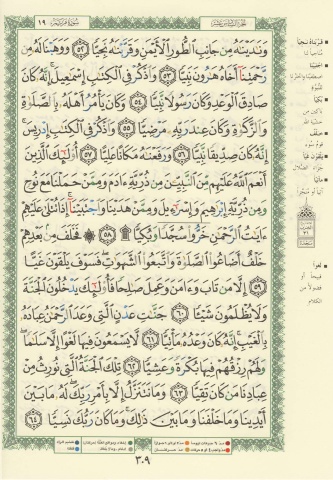 سورة مريم ١٩
الجزء السادس عشر
وَنَٰدَيْنَٰهُ مِن جَانِبِ ٱلطُّورِ ٱلْأَيْمَنِ وَقَرَّبْنَٰهُ نَجِيًّا ٥٢ وَوَهَبْنَا لَهُۥ مِن
رَّحْمَتِنَآ أَخَاهُ هَٰرُونَ نَبِيًّا ٥٣ وَٱذْكُرْ فِى ٱلْكِتَٰبِ إِسْمَٰعِيلَ إِنَّهُۥ كَانَ
صَادِقَ ٱلْوَعْدِ وَكَانَ رَسُولًا نَّبِيًّا ٥٤ وَكَانَ يَأْمُرُ أَهْلَهُۥ بِٱلصَّلَوٰةِ
وَٱلزَّكَوٰةِ وَكَانَ عِندَ رَبِّهِۦ مَرْضِيًّا ٥٥ وَٱذْكُرْ فِى ٱلْكِتَٰبِ إِدْرِيسَ
إِنَّهُۥ كَانَ صِدِّيقًا نَّبِيًّا ٥٦ وَرَفَعْنَٰهُ مَكَانًا عَلِيًّا ٥٧ أُو۟لَٰٓئِكَ ٱلَّذِينَ
أَنْعَمَ ٱللَّهُ عَلَيْهِم مِّنَ ٱلنَّبِيِّـۧنَ مِن ذُرِّيَّةِ ءَادَمَ وَمِمَّنْ حَمَلْنَا مَعَ نُوحٍ
وَمِن ذُرِّيَّةِ إِبْرَٰهِيمَ وَإِسْرَٰٓءِيلَ وَمِمَّنْ هَدَيْنَا وَٱجْتَبَيْنَآ إِذَا تُتْلَىٰ عَلَيْهِمْ
ءَايَٰتُ ٱلرَّحْمَٰنِ خَرُّوا۟ سُجَّدًا وَبُكِيًّا ۩ ٥٨ فَخَلَفَ مِنۢ بَعْدِهِمْ
خَلْفٌ أَضَاعُوا۟ ٱلصَّلَوٰةَ وَٱتَّبَعُوا۟ ٱلشَّهَوَٰتِ فَسَوْفَ يَلْقَوْنَ غَيًّا
٥٩ إِلَّا مَن تَابَ وَءَامَنَ وَعَمِلَ صَٰلِحًا فَأُو۟لَٰٓئِكَ يَدْخُلُونَ ٱلْجَنَّةَ
وَلَا يُظْلَمُونَ شَيْـًٔا ٦٠ جَنَّٰتِ عَدْنٍ ٱلَّتِى وَعَدَ ٱلرَّحْمَٰنُ عِبَادَهُۥ
بِٱلْغَيْبِ إِنَّهُۥ كَانَ وَعْدُهُۥ مَأْتِيًّا ٦١ لَّا يَسْمَعُونَ فِيهَا لَغْوًا إِلَّا سَلَٰمًا
وَلَهُمْ رِزْقُهُمْ فِيهَا بُكْرَةً وَعَشِيًّا ٦٢ تِلْكَ ٱلْجَنَّةُ ٱلَّتِى نُورِثُ مِنْ
عِبَادِنَا مَن كَانَ تَقِيًّا ٦٣ وَمَا نَتَنَزَّلُ إِلَّا بِأَمْرِ رَبِّكَ لَهُۥ مَا بَيْنَ
أَيْدِينَا وَمَا خَلْفَنَا وَمَا بَيْنَ ذَٰلِكَ وَمَا كَانَ رَبُّكَ نَسِيًّا ٦٤
٣٠٩
قربناه نجيا
مناجيا لنا
اجتبينا
بكيا
باكين من
خشية الله
خلف
يلقون غيا
مأتيا
لغوا
قبيحا أو
فضولا من